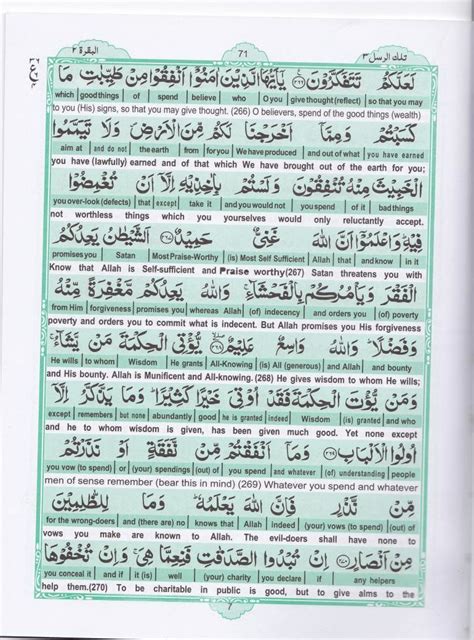 البقرة ٢ 71 تلك الرسل ٣
لَعَلَّكُمْ تَتَفَكَّرُوْنَ ﴿٢٦٦﴾ يٰٓاَيُّهَا الَّذِيْنَ اٰمَنُوْٓا اَنْفِقُوْا مِنْ طَيِّبٰتِ مَا
which | good things | of | spend | believe | who | O you | give thought (reflect) | so that you may
to you (His) signs, so that you may give thought. (266) O believers, spend of the good things (wealth)
كَسَبْتُمْ وَمِمَّآ اَخْرَجْنَا لَكُمْ مِّنَ الْاَرْضِ وَلَا تَيَمَّمُوا
aim at | and do not | the earth | from | for you | We have produced | and out of what | you have earned
you have (lawfully) earned and of that which We have brought out of the earth for you;
الْخَبِيْثَ مِنْهُ تُنْفِقُوْنَ وَلَسْتُمْ بِاٰخِذِيْهِ اِلَّآ اَنْ تُغْمِضُوْا
you over-look (defects) | that | except | take it | and you would not | you spend | of it | bad things
not worthless things which you yourselves would only reluctantly accept.
فِيْهِ وَاعْلَمُوْٓا اَنَّ اللّٰهَ غَنِيٌّ حَمِيْدٌ ﴿٢٦٧﴾ اَلشَّيْطٰنُ يَعِدُكُمُ
promises you | Satan | Most Praise-Worthy | (is) Most Self Sufficient | Allah | that | and know | in it
Know that Allah is Self-sufficient and Praise worthy(267) Satan threatens you with
الْفَقْرَ وَيَاْمُرُكُمْ بِالْفَحْشَآءِ وَاللّٰهُ يَعِدُكُمْ مَّغْفِرَةً مِّنْهُ
from Him | forgiveness | promises you | whereas Allah | (of) indecency | and orders you | (of) poverty
poverty and orders you to commit what is indecent. But Allah promises you His forgiveness
وَفَضْلًا وَاللّٰهُ وَاسِعٌ عَلِيْمٌ ﴿٢٦٨﴾ يُّؤْتِى الْحِكْمَةَ مَنْ يَّشَآءُ
He wills | to whom | Wisdom | He grants | All-Knowing | (is) All (generous) | and Allah | and bounty
and His bounty. Allah is Munificent and All-knowing. (268) He gives wisdom to whom He wills;
وَمَنْ يُّؤْتَ الْحِكْمَةَ فَقَدْ اُوْتِيَ خَيْرًا كَثِيْرًا وَمَا يَذَّكَّرُ اِلَّآ
except | remembers | but none | abundantly | good | he is granted | indeed | Wisdom | (is) granted | and whom
and he to whom wisdom is given, has been given much good. Yet none except
اُولُوا الْاَلْبَابِ ﴿٢٦٩﴾ وَمَآ اَنْفَقْتُمْ مِّنْ نَّفَقَةٍ اَوْ نَذَرْتُمْ
you vow (to spend) | or | (your) spendings | (out) of | you spend | and whatever | (of) understanding | people
men of sense remember (bear this in mind) (269) Whatever you spend and whatever
مِّنْ نَّذْرٍ فَاِنَّ اللّٰهَ يَعْلَمُهٗ وَمَا لِلظّٰلِمِيْنَ
for the wrong-doers | and (there are) no | knows that | Allah | indeed | (your) vows (to spend) | (out) of
vows you make are known to Allah. The evil-doers shall have none to
مِنْ اَنْصَارٍ ﴿٢٧٠﴾ اِنْ تُبْدُوا الصَّدَقٰتِ فَنِعِمَّا هِيَ وَاِنْ تُخْفُوْهَا
you conceal it | and if | it (is) | well | (your) charity | you declare | if | any helpers
help them.(270) To be charitable in public is good, but to give alms to the